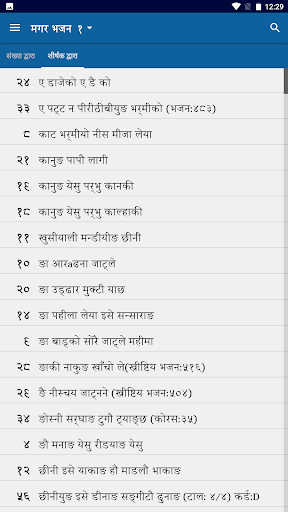 12:29
मगर भजन १
संख्या द्वारा
शीर्षक द्वारा
२४ ए डाजेको ए डै को
३३ ए पट्ट न पीरीठीबीयुङ भर्मीको (भजन:४८३)
८ काट भर्मीयो नीस मीजा लेया
२१ कानुङ पापौ लागी
१६ कानुङ येसु पर्भु कानकी
१८ कानुङ येसु पर्भु काल्हाकी
११ खुसीयाली मन्डीयीङ छीनी
१३ ङा आरaढना जाट्ले
२० ङा उड्ढार मुक्टी याछ
१४ ङा पहीला लेया इसे सन्साराङ
६ ङा बाङ्को सोरै जाट्ले महीमा
२८ ङाकी नाकुङ खाँचो ले(ख्रीष्टिय भजन:५१६)
२६ ङै नीस्चय जाट्नने (ख्रीष्टिय भजन:५०४)
३४ ङोस्नी सर्घाङ टुगौ ट्याङ्छ (कोरस:३५)
४ ङौ मनाङ येसु रीडयाङ येसु
१२ छीनी इसे याकाङ हौ माडलौ भाकाङ
५६ छीनीयुङ इसे डीनाङ सङ्गीटौ ढुनाङ (टाल: ४/४) कर्ड:D